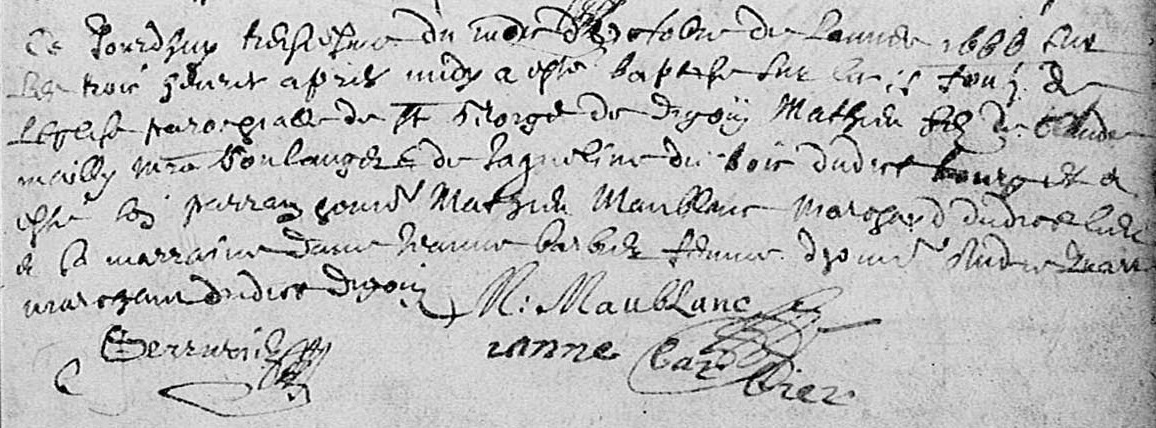 Ce Jourdhuy tresiesme du mois d'octobre de Lannee 1666 sur
les trois heures apres midy a esté baptisé sur les fons de
Leglise parochialle de St George de Digoin Mathieu filz de Claude
mailly mre boulanger & de Jaqueline du bois dudict bourg et a
esté son parrain honn^e Mathieu Maublanc marchand dudict lieu
& sa marraine dame Jeanne barbier femme d'honn^e
marchant dudict Digoin M: Maublanc
ianne bar
bier